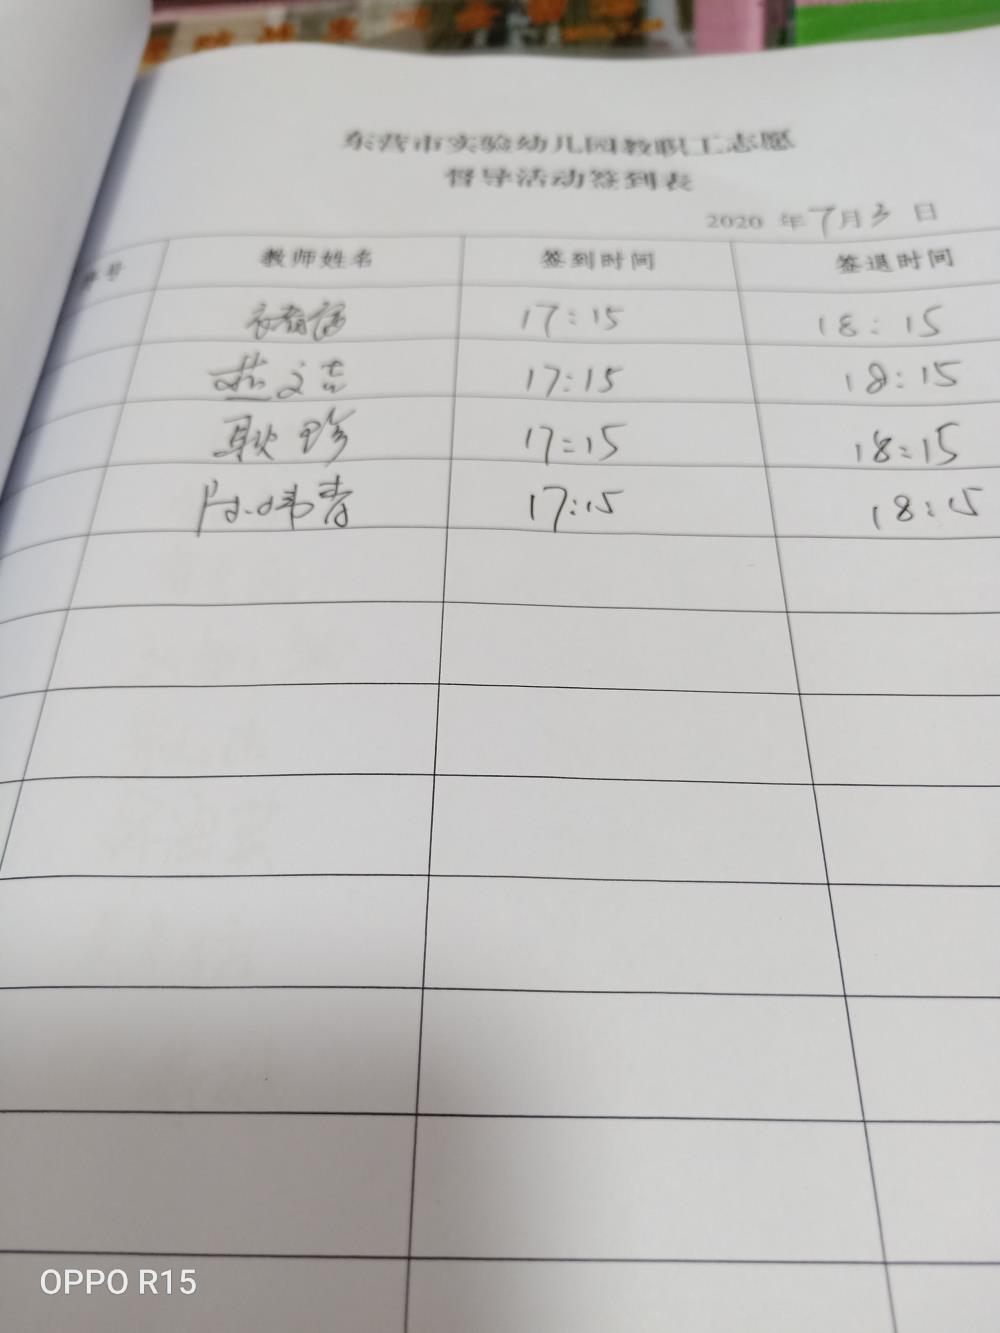 东营市实验幼儿园教职工志愿
督导活动签到表
2020 年 7月3 日
序号 教师姓名 签到时间 签退时间
17:15 18:15
燕文洁 17:15 18:15
耿珍 17:15 18:15
17:15 18:15
OPPO R15